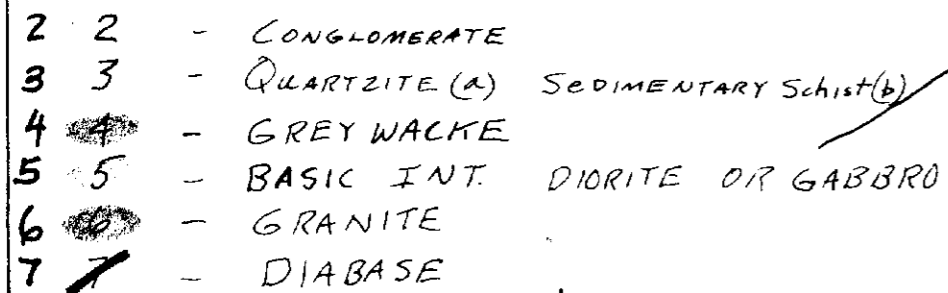 2 2 - CONGLOMERATE
3 3 - QUARTZITE (a) SEDIMENTARY Schist (b)
4 4 - GREY WACKE
5 5 - BASIC INT. DIORITE OR GABBRO
6 6 - GRANITE
7 7 - DIABASE